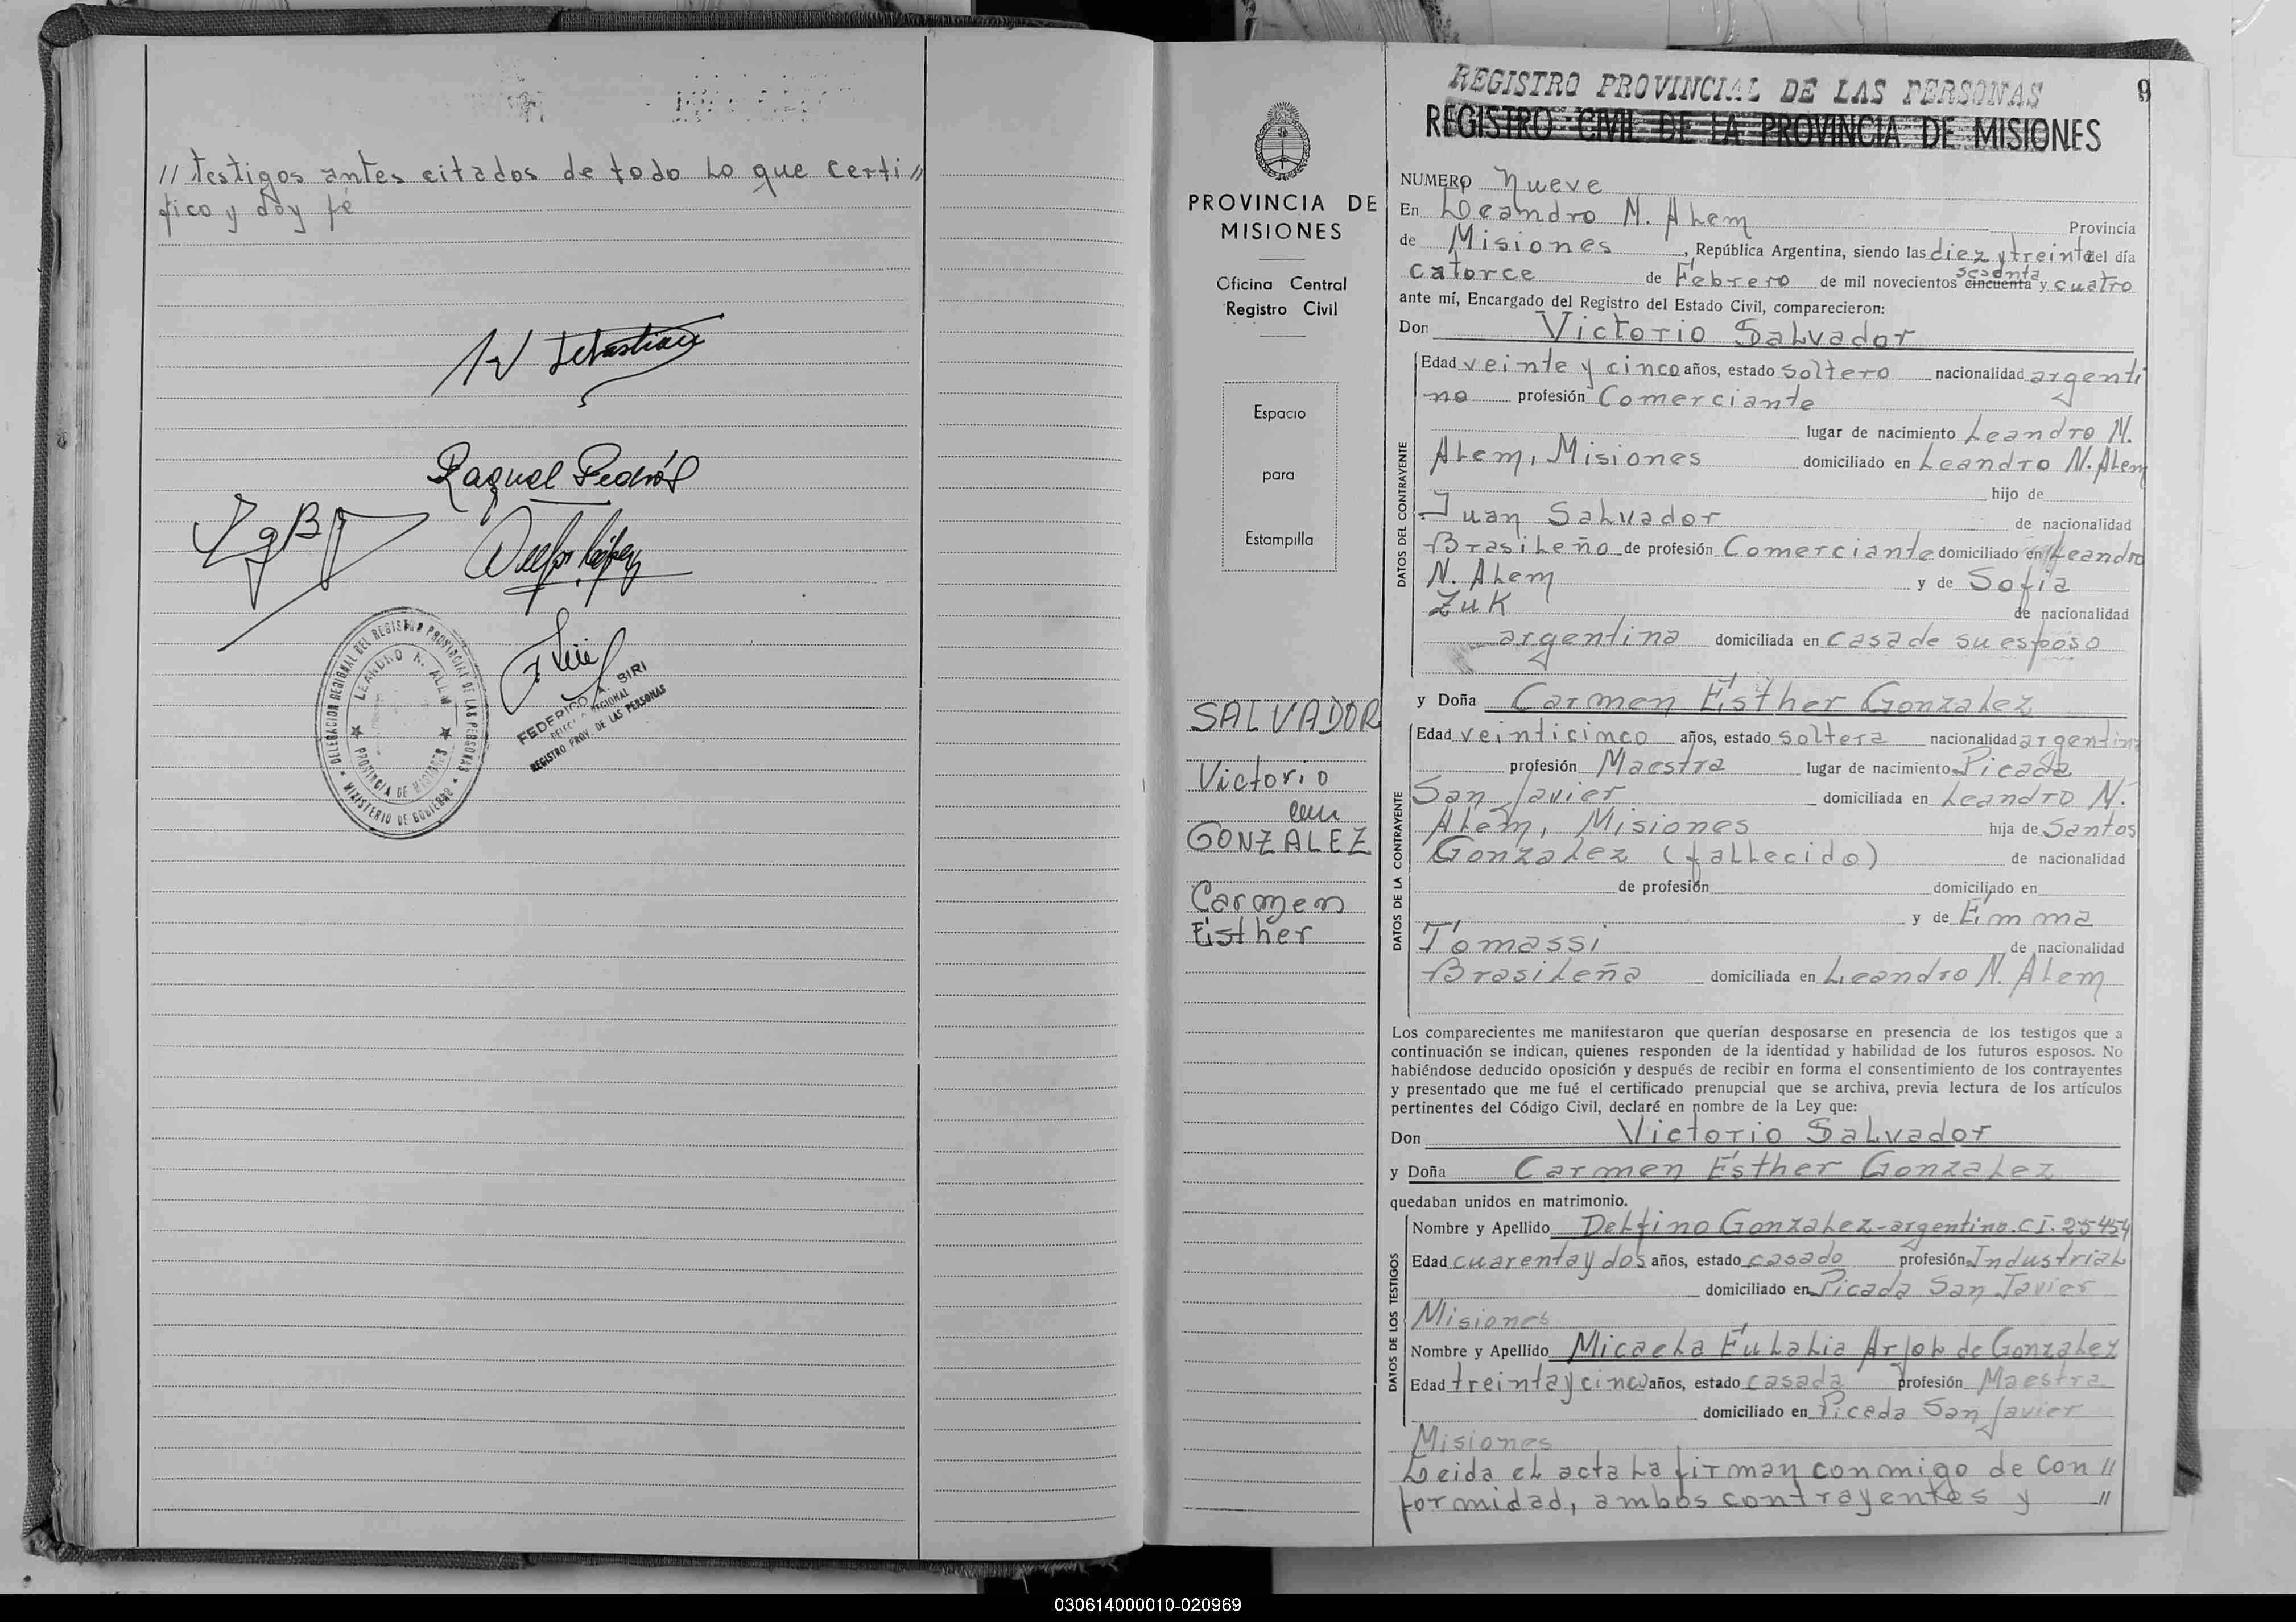 // testigos antes citados de todo lo que certi //
fico y doy fé
Raquel Pedrós
DELEGACION REGIONAL DEL REGISTRO PROVINCIAL DE LAS PERSONAS
LEANDRO N. ALEM
PROVINCIA DE MISIONES
MINISTERIO DE GOBIERNO
FEDERICO A. SIRI
REGIONAL
REGISTRO PROV. DE LAS PERSONAS
PROVINCIA DE
MISIONES
Oficina Central
Registro Civil
Espacio
para
Estampilla
SALVADOR
Victorio
con
GONZALEZ
Carmen
Esther
REGISTRO PROVINCIAL DE LAS PERSONAS
9
REGISTRO CIVIL DE LA PROVINCIA DE MISIONES
NUMERO Nueve
En Leandro N. Alem Provincia
de Misiones, República Argentina, siendo las diez y treinta del día
catorce de Febrero de mil novecientos cincuenta sesenta y cuatro
ante mí, Encargado del Registro del Estado Civil, comparecieron:
Don Victorio Salvador
DATOS DEL CONTRAYENTE
Edad veinte y cinco años, estado soltero nacionalidad argenti
no profesión Comerciante
lugar de nacimiento Leandro N.
Alem, Misiones domiciliado en Leandro N. Alem
hijo de
Juan Salvador de nacionalidad
Brasileño de profesión Comerciante domiciliado en Leandro
N. Alem y de Sofia
Zuk de nacionalidad
argentina domiciliada en casa de su esposo
y Doña Carmen Esther Gonzalez
DATOS DE LA CONTRAYENTE
Edad veinticinco años, estado soltera nacionalidad argentina
profesión Maestra lugar de nacimiento Picada
San Javier domiciliada en Leandro N.
Alem, Misiones hija de Santos
Gonzalez (fallecido) de nacionalidad
de profesión domiciliado en
y de Emma
Tomassi de nacionalidad
Brasileña domiciliada en Leandro N. Alem
Los comparecientes me manifestaron que querían desposarse en presencia de los testigos que a
continuación se indican, quienes responden de la identidad y habilidad de los futuros esposos. No
habiéndose deducido oposición y después de recibir en forma el consentimiento de los contrayentes
y presentado que me fué el certificado prenupcial que se archiva, previa lectura de los artículos
pertinentes del Código Civil, declaré en nombre de la Ley que:
Don Victorio Salvador
y Doña Carmen Esther Gonzalez
quedaban unidos en matrimonio.
DATOS DE LOS TESTIGOS
Nombre y Apellido Delfino Gonzalez - argentino. C.I. 25454
Edad cuarenta y dos años, estado casado profesión Industrial
domiciliado en Picada San Javier
Misiones
Nombre y Apellido Micaela Eulalia Arjol de Gonzalez
Edad treinta y cinco años, estado casada profesión Maestra
domiciliado en Picada San Javier
Misiones
Leida el acta la firman conmigo de con //
formidad, ambos contrayentes y //
030614000010-020969